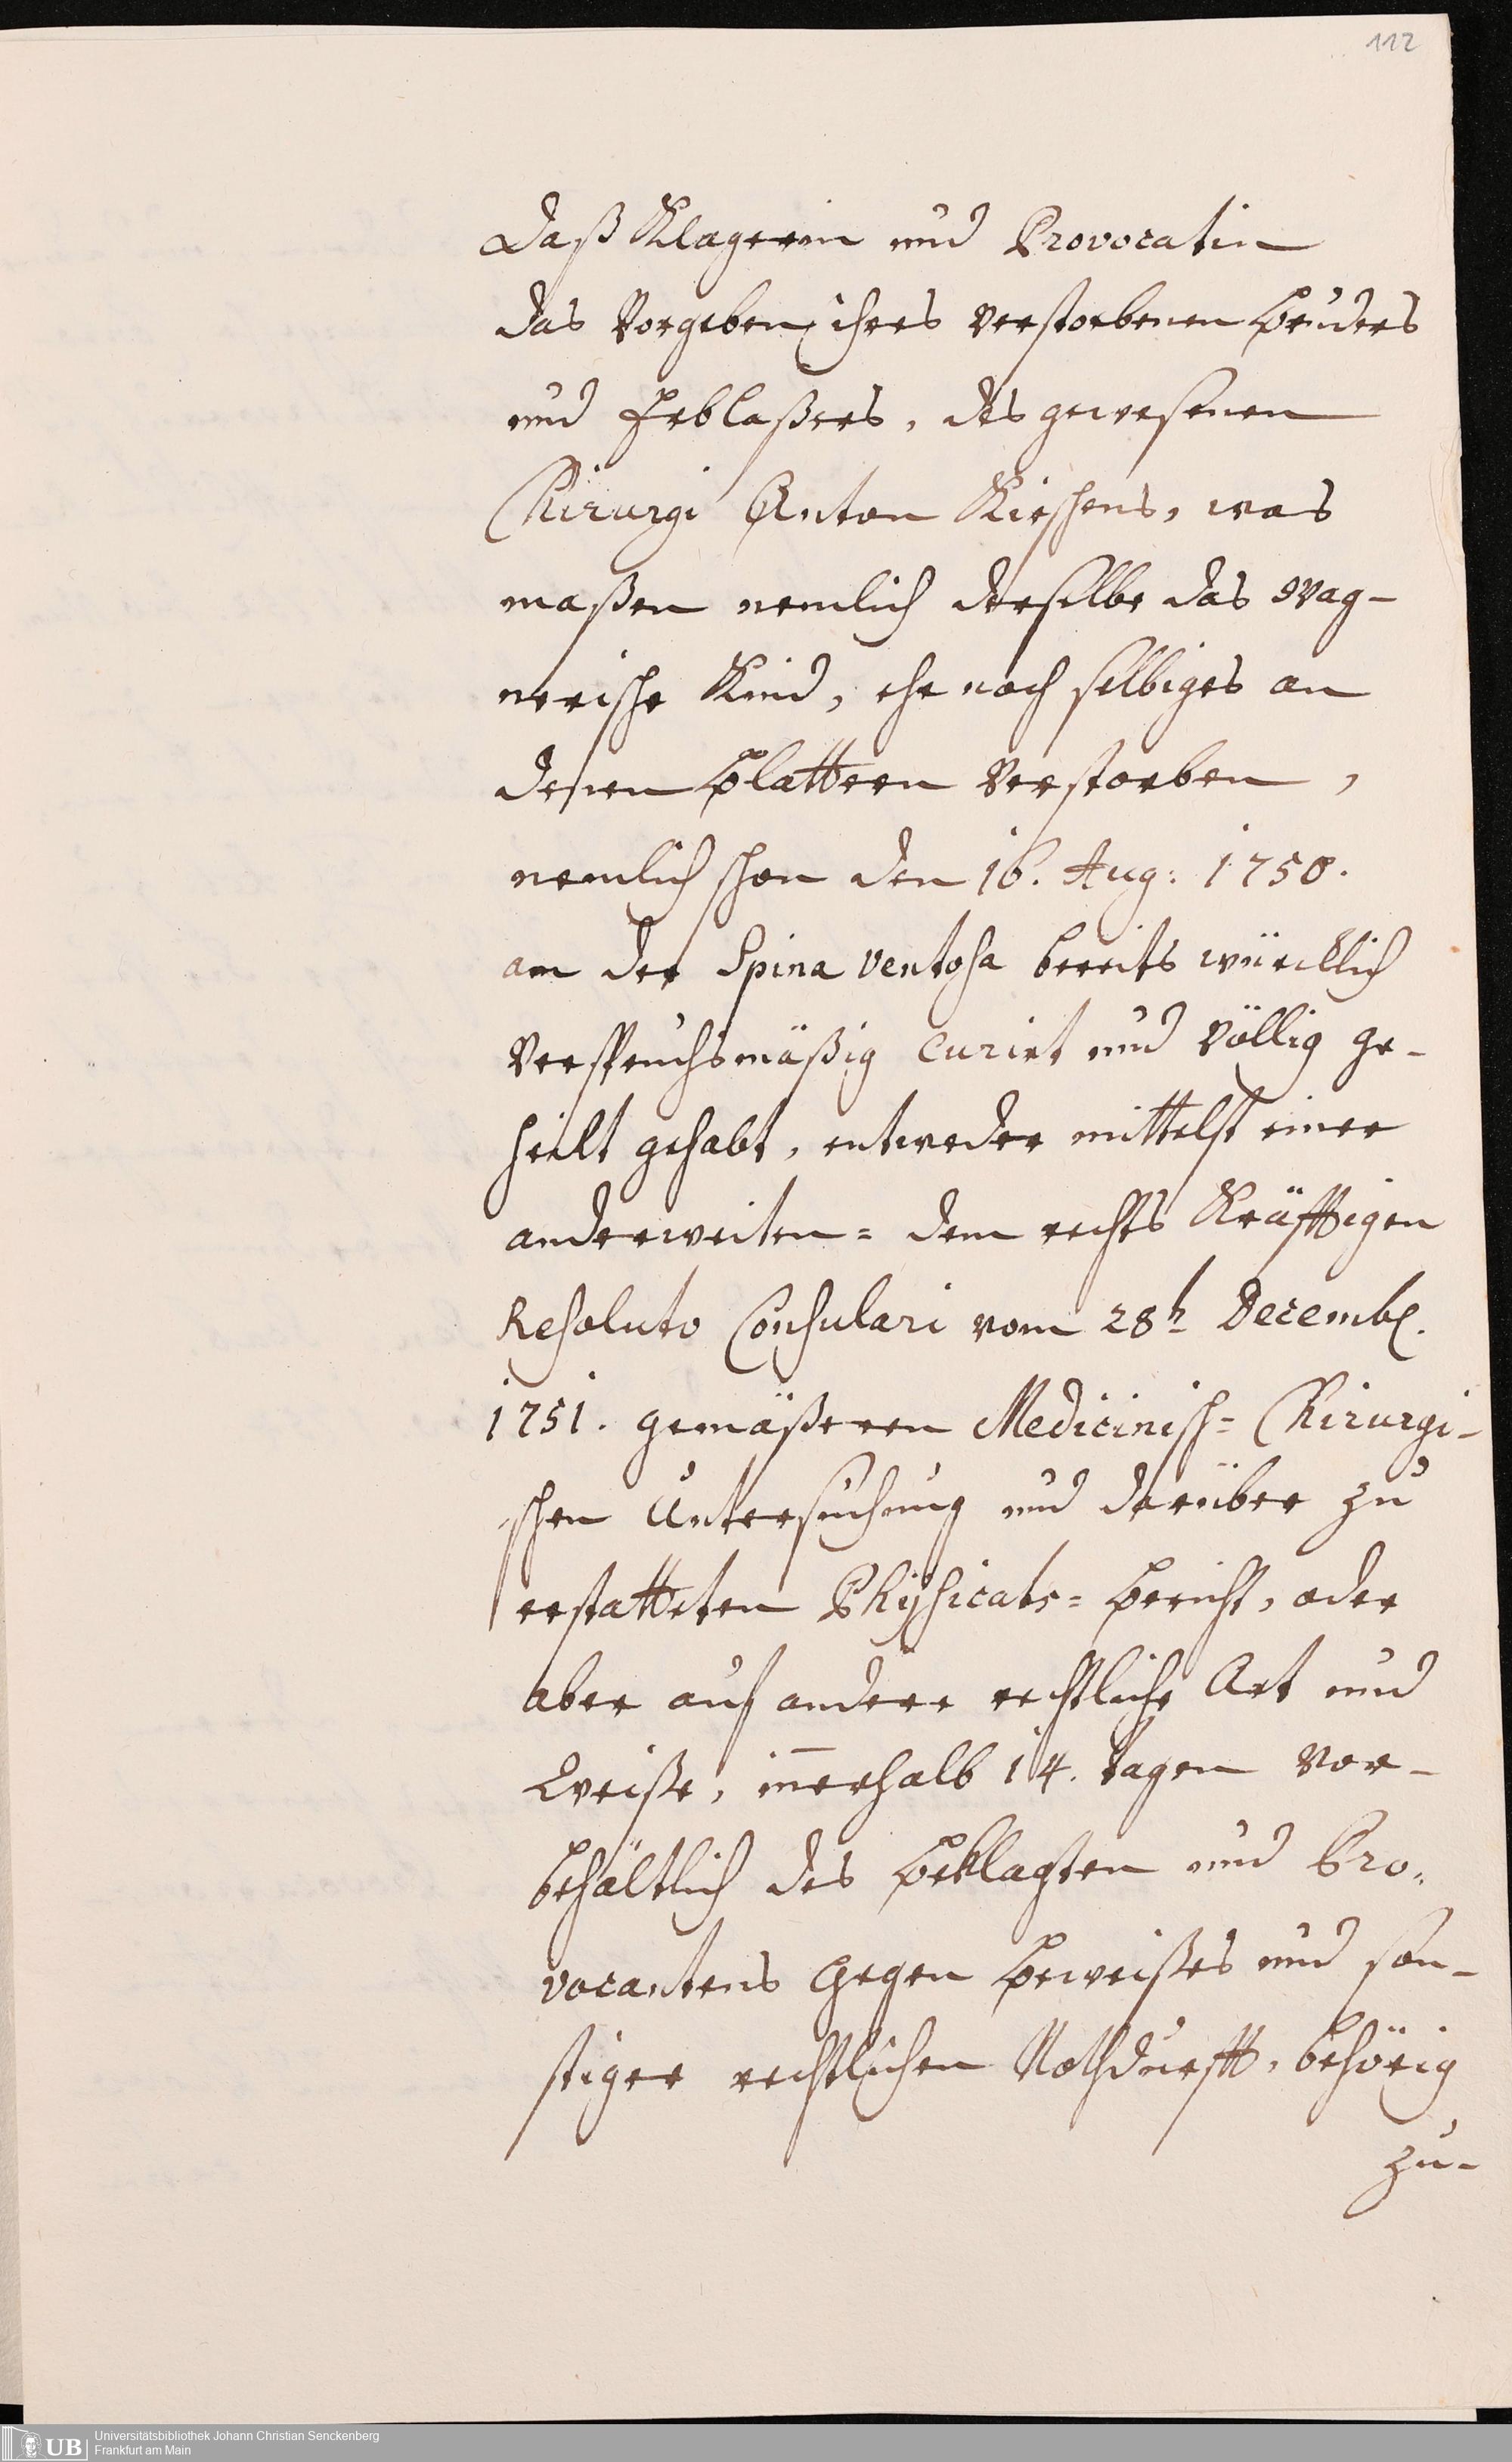 112
Daß Klagerin und Provocatin
das Vorgeben ihres verstorbenen Bruders
und Erblaßers, des gewesenen
Chirurgi Anton Kirschens, was
maßen nemlich derselbe das Wag-
nerische Kind, ehe noch selbiges an
denen Blattern verstorben,
nemlich schon den 16. Aug: 1750.
an der Spina ventosa bereits würcklich
verspruchsmäßig curirt und völlig ge-
heilt gehabt, entweder mittelst einer
anderweiten= dem rechts Kräfftigen
Resoluto Consulari vom 28t Decembr.
1751. gemäßeren Medicinisch=Chirurgi-
schen Untersuchung und darüber zu
erstatteten Physicats=Bericht, oder
aber auf andere rechtliche Art und
Weiße, iñerhalb 14. tagen vor-
behältlich des Beklagten und Pro-
vocantens Gegen Beweißes und son-
stiger rechtlichen Nothdurfft, behörig
zu-
UB
Universitätsbibliothek Johann Christian Senckenberg
Frankfurt am Main